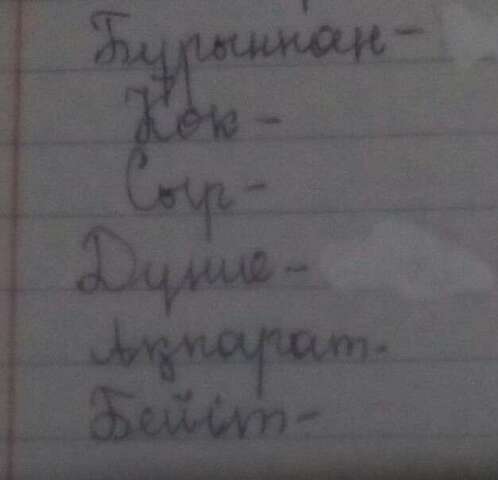 Бұрыннан-
Көк-
Сыр-
Дүние-
Ақпарат-
Бейіт-